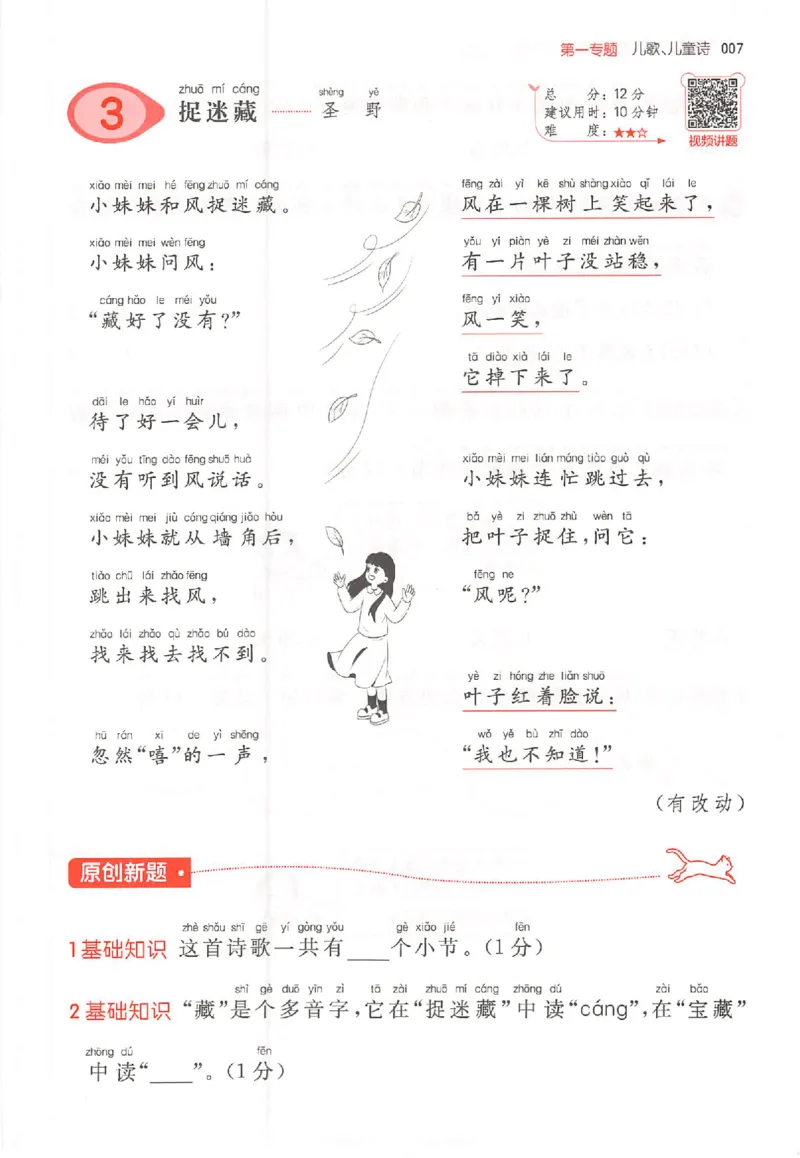 第一专题 儿歌、儿童诗 007
zhuō mí cáng shèng yě
3 捉迷藏 ………… 圣 野
总 分：12 分
建议用时：10 分钟
难 度：★★☆
视频讲题
xiǎo mèi mei hé fēng zhuō mí cáng
小妹妹和风捉迷藏。
xiǎo mèi mei wèn fēng
小妹妹问风：
cáng hǎo le méi yǒu
“藏好了没有?”
dāi le hǎo yí huìr
待了好一会儿，
méi yǒu tīng dào fēng shuō huà
没有听到风说话。
xiǎo mèi mei jiù cóng qiáng jiǎo hòu
小妹妹就从墙角后，
tiào chū lái zhǎo fēng
跳出来找风，
zhǎo lái zhǎo qù zhǎo bú dào
找来找去找不到。
hū rán xī de yì shēng
忽然“嘻”的一声，
fēng zài yì kē shù shàng xiào qǐ lái le
风在一棵树上笑起来了，
yǒu yí piàn yè zi méi zhàn wěn
有一片叶子没站稳，
fēng yí xiào
风一笑，
tā diào xià lái le
它掉下来了。
xiǎo mèi mei lián máng tiào guò qù
小妹妹连忙跳过去，
bǎ yè zi zhuō zhù wèn tā
把叶子捉住，问它：
fēng ne
“风呢?”
yè zi hóng zhe liǎn shuō
叶子红着脸说：
wǒ yě bù zhī dào
“我也不知道！”
（有改动）
原创新题
zhè shǒu shī gē yí gòng yǒu gè xiǎo jié fēn
1 基础知识 这首诗歌一共有____个小节。（1分）
shì gè duō yīn zì tā zài zhuō mí cáng zhōng dú zài bǎo
2 基础知识 “藏”是个多音字，它在“捉迷藏”中读“cáng”，在“宝藏”
zhōng dú fēn
中读“____”。（1分）